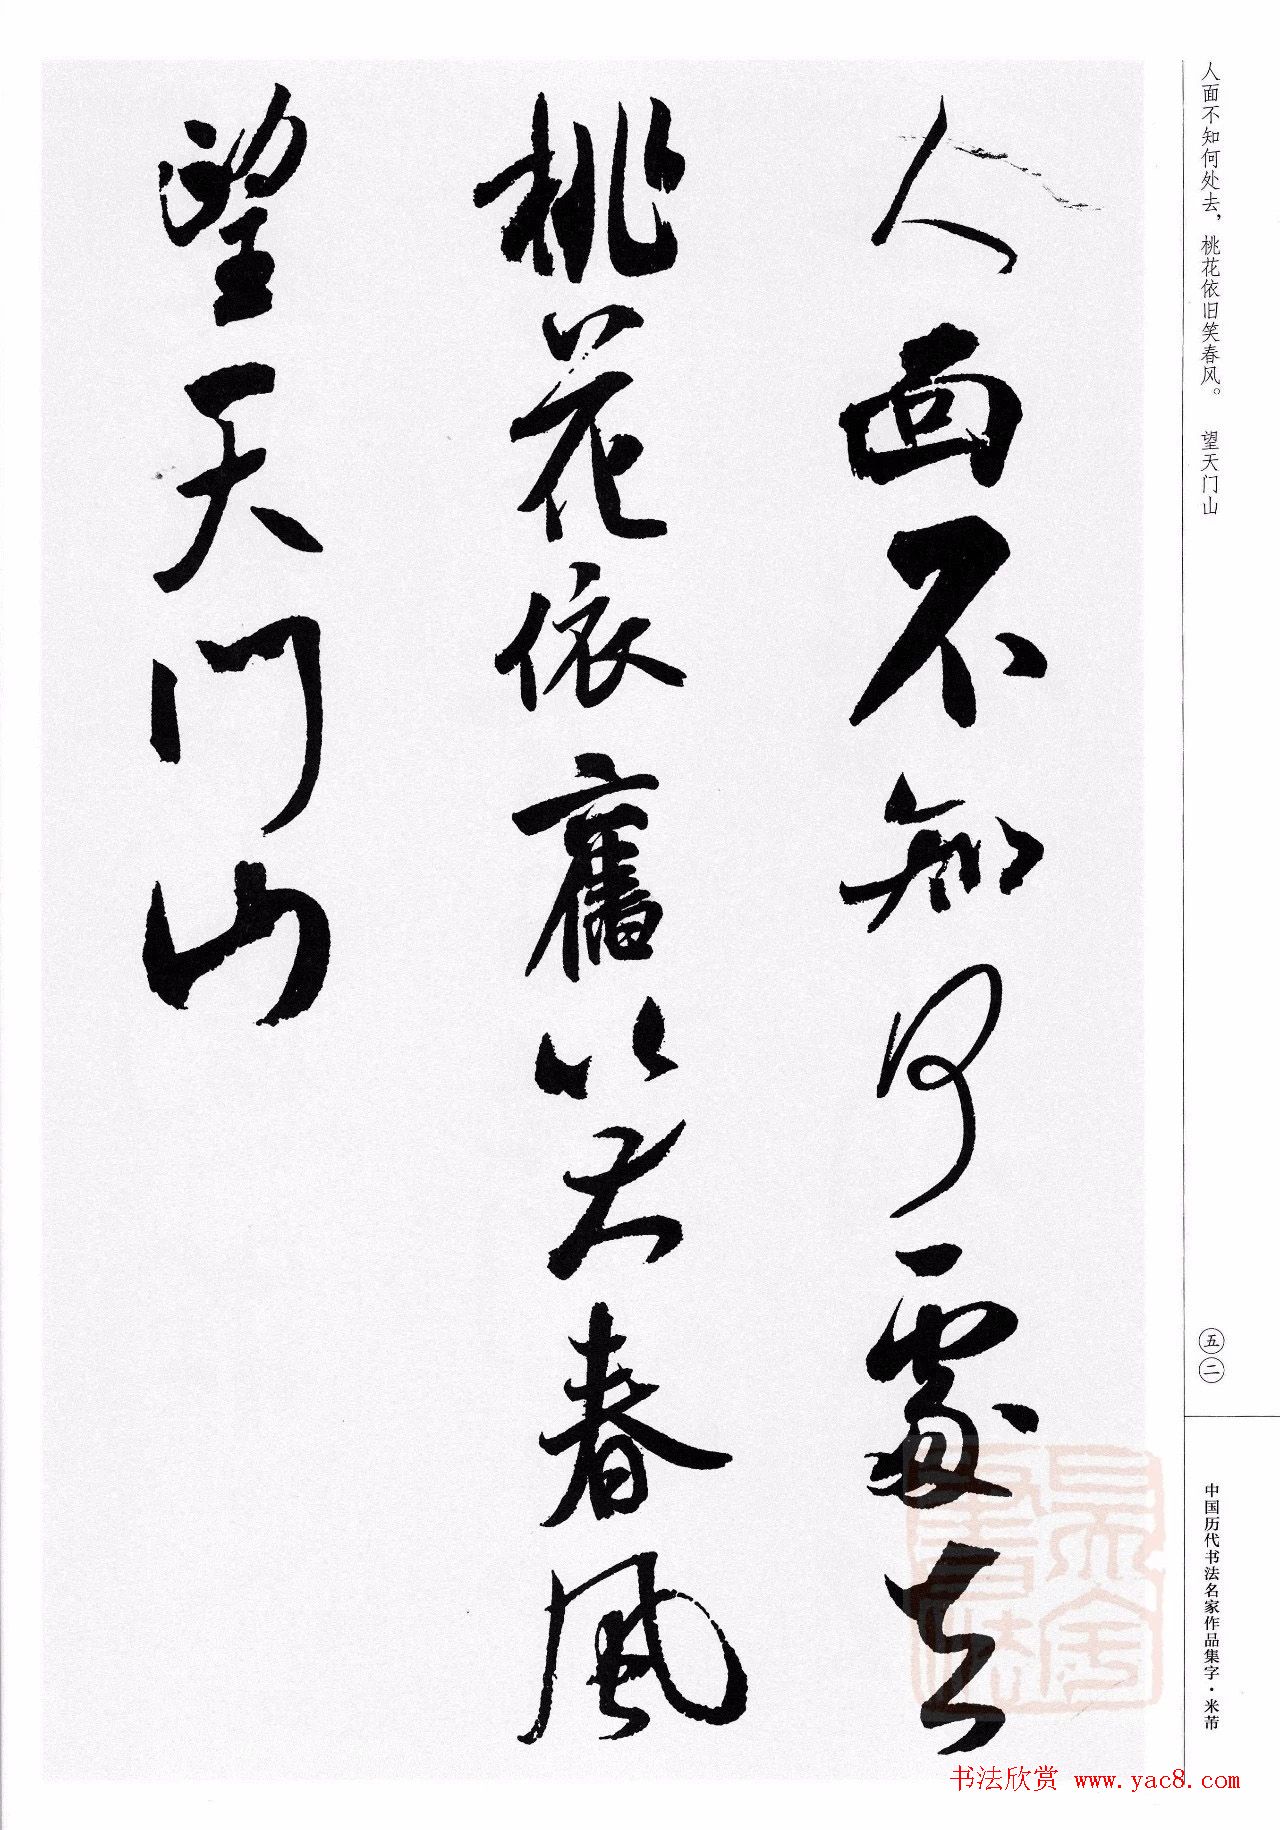 人面不知何處去
桃花依舊笑春風
望天门山
人面不知何处去，桃花依旧笑春风。 望天门山
五二
中国历代书法名家作品集字·米芾
书法欣赏 www.yac8.com